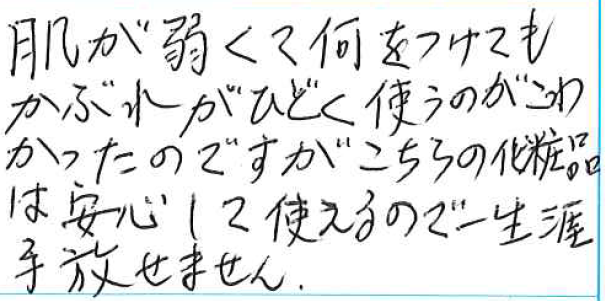 肌が弱くて何をつけても
かぶれがひどく使うのがこわ
かったのですがこちらの化粧品
は安心して使えるので一生涯
手放せません.